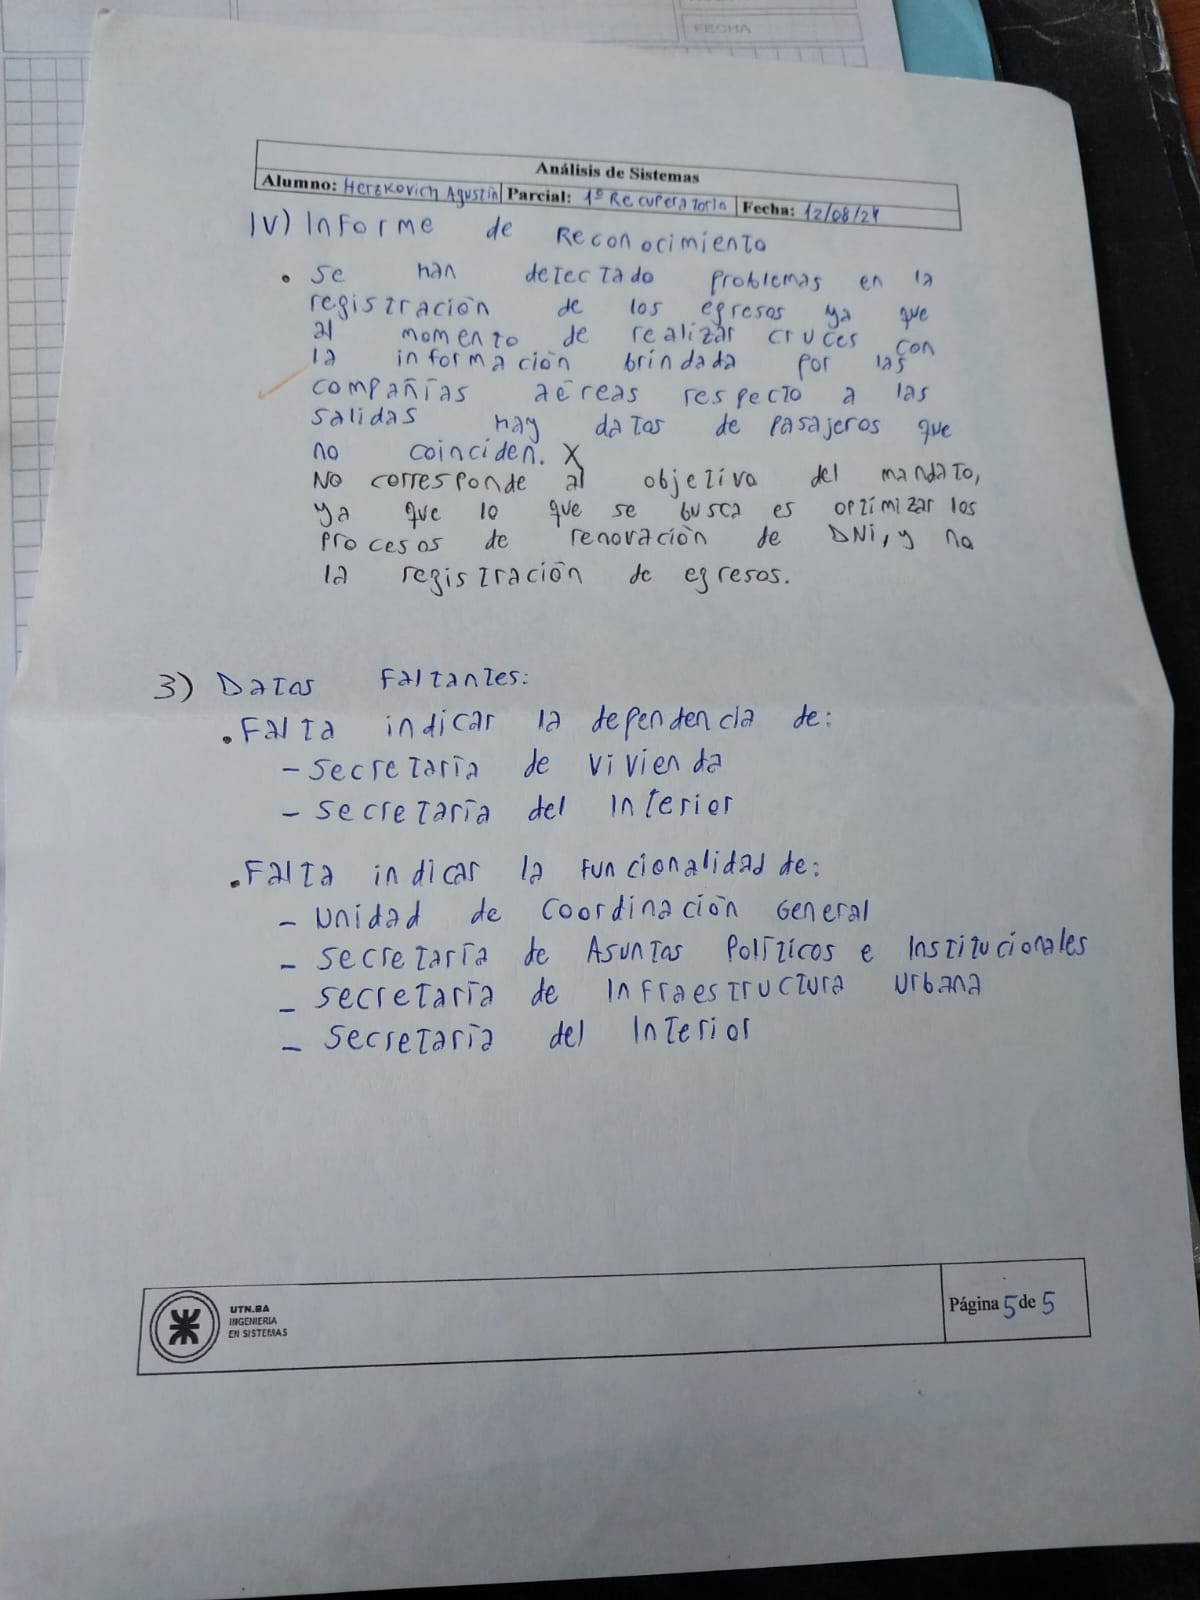 FECHA
Análisis de Sistemas
Alumno: Herzkovich Agustín Parcial: 1º Recuperatorio Fecha: 12/08/24
IV) Informe de Reconocimiento
• Se han detectado problemas en la
registración de los egresos ya que
al momento de realizar cruces con
la información brindada por las
compañías aéreas respecto a las
salidas hay datos de pasajeros que
no coinciden. X
No corresponde al objetivo del mandato,
ya que lo que se busca es optimizar los
procesos de renovación de DNI, y no
la registración de egresos.
3) Datos Faltantes:
• Falta indicar la dependencia de:
- Secretaría de Vivienda
- Secretaría del Interior
• Falta indicar la funcionalidad de:
- Unidad de Coordinación General
- Secretaría de Asuntos Políticos e Institucionales
- Secretaría de Infraestructura Urbana
- Secretaría del Interior
UTN.BA
INGENIERIA
EN SISTEMAS
Página 5 de 5